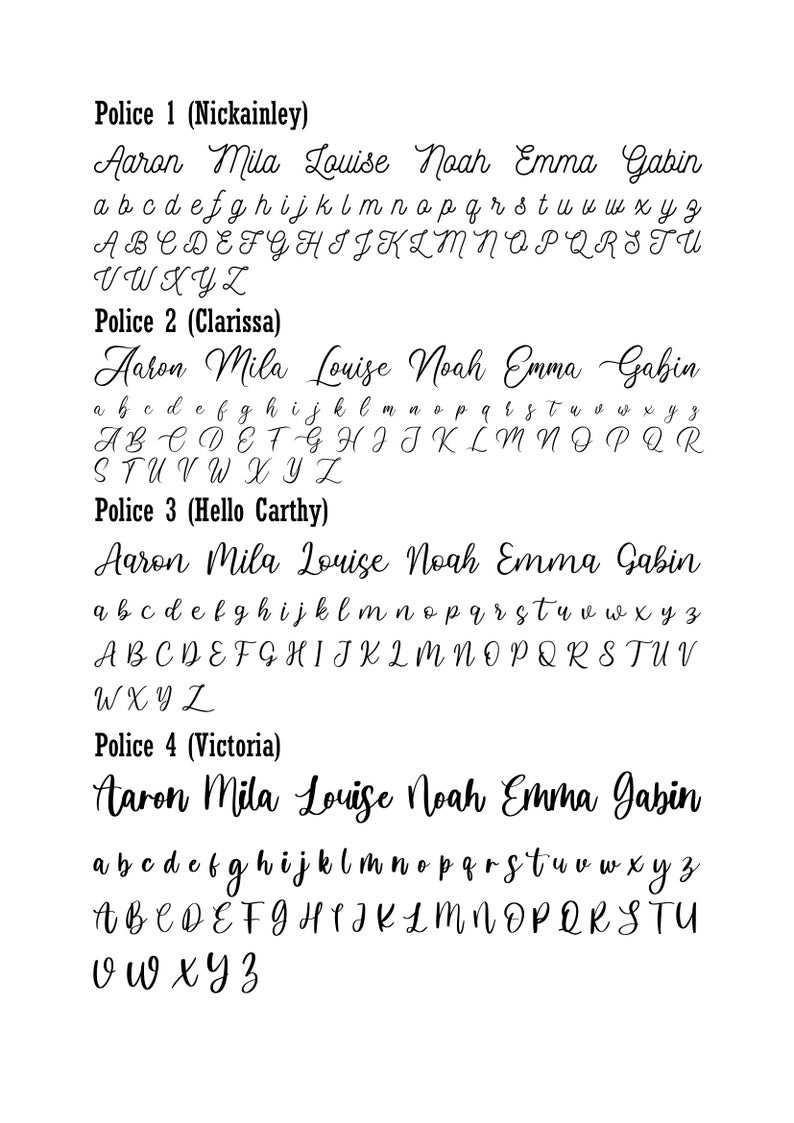 Police 1 (Nickainley)
Aaron Mila Louise Noah Emma Gabin
a b c d e f g h i j k l m n o p q r s t u v w x y z
A B C D E F G H I J K L M N O P Q R S T U
V W X Y Z
Police 2 (Clarissa)
Aaron Mila Louise Noah Emma Gabin
a b c d e f g h i j k l m n o p q r s t u v w x y z
A B C D E F G H I J K L M N O P Q R
S T U V W X Y Z
Police 3 (Hello Carthy)
Aaron Mila Louise Noah Emma Gabin
a b c d e f g h i j k l m n o p q r s t u v w x y z
A B C D E F G H I J K L M N O P Q R S T U V
W X Y Z
Police 4 (Victoria)
Aaron Mila Louise Noah Emma Gabin
a b c d e f g h i j k l m n o p q r s t u v w x y z
A B C D E F G H I J K L M N O P Q R S T U
V W X Y Z